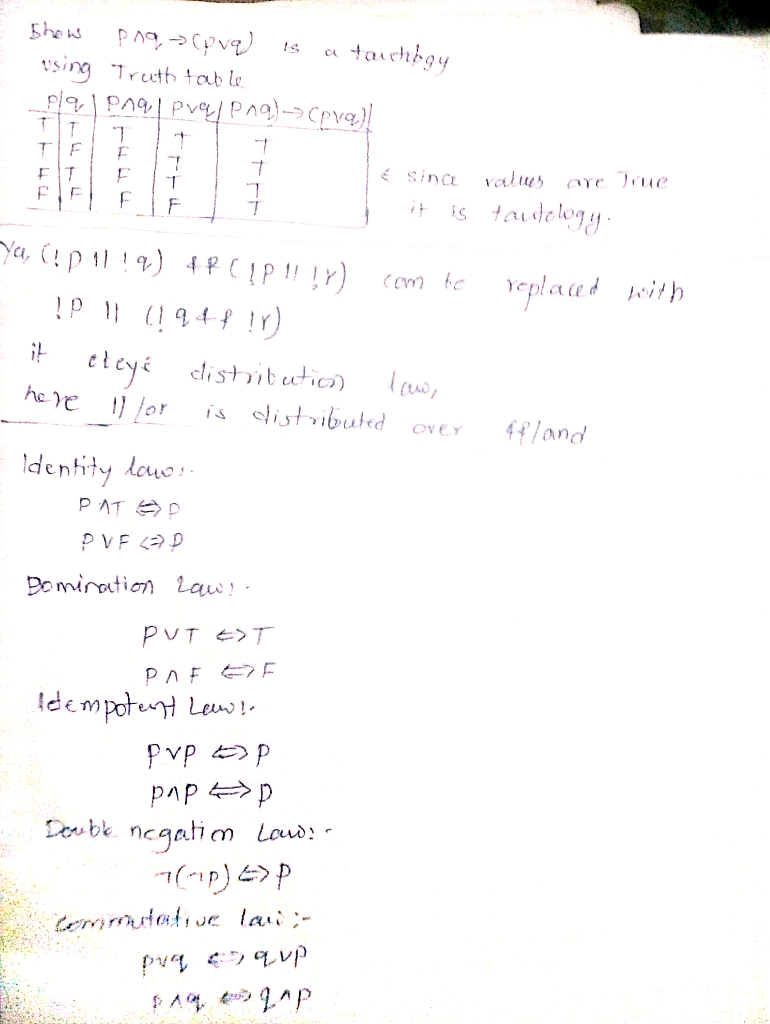 Show p∧q→(p∨q) is a tautology
using Truth table
p|q|p∧q|p∨q|p∧q)→(p∨q)|
T T T T T
T F F T T
F T F T T
F F F F T
since values are True
it is tautology.
Ya, (!p || !q) && (!p || !r) can be replaced with
!p || (!q && !r)
it obeys distribution law,
here ||/or is distributed over &&/and
Identity law:-
P∧T ⇔ P
P∨F ⇔ P
Domination Law:-
P∨T ⇔ T
P∧F ⇔ F
Idempotent Law:-
p∨p ⇔ p
p∧p ⇔ p
Double negation Law:-
¬(¬p) ⇔ p
commutative law:-
p∨q ⇔ q∨p
p∧q ⇔ q∧p